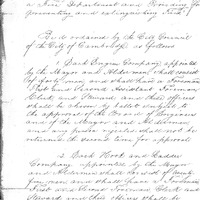 a Fire Department and Providing for
preventing and extinguishing Fires.
Be it ordained by the City Council
of the City of Cambridge as follows
1. Each Engine Company appointed
by the Mayor and Aldermen shall consist
of forty men and shall have a Foreman
First and Second Assistant Foreman
Clerk and Steward and these officers
shall be chosen by ballot subject to
the approval of the Board of Engineers
and of the Mayor and Aldermen
and any person rejected shall not be
returned the second time for approval
2. Each Hook and Ladder
Company appointed by the Mayor
and Aldermen shall consist of
men and shall have a Foreman
First and Second Foreman Clerk and
Steward and these officers shall be